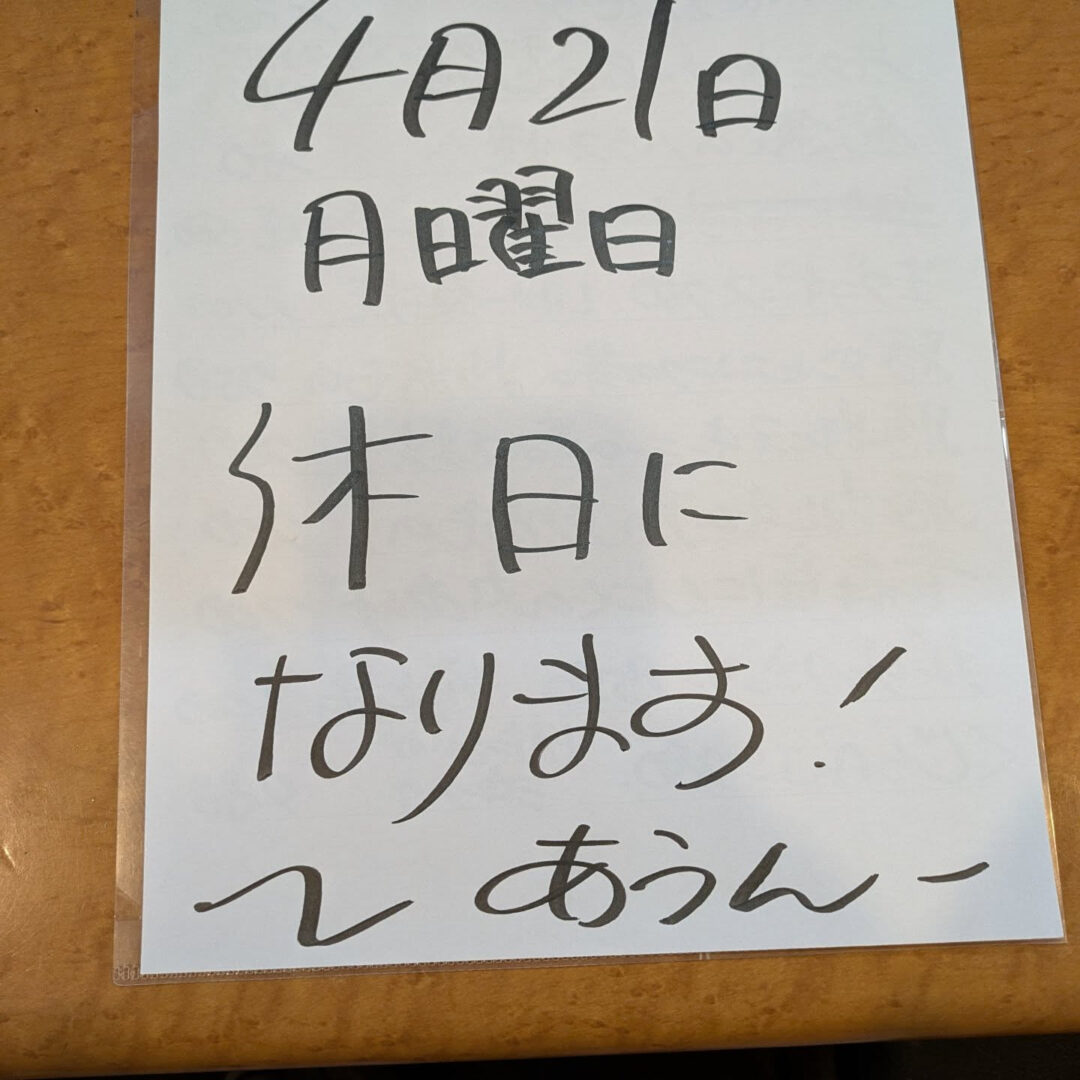 4月21日
月曜日
休日に
なります!
〜あうんー